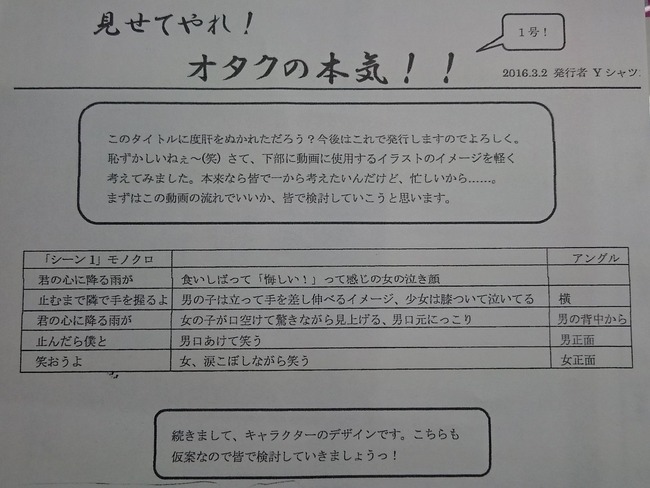 見せてやれ！
1号！
オタクの本気！！
2016.3.2 発行者 Yシャツ
このタイトルに度肝をぬかれただろう？今後はこれで発行しますのでよろしく。
恥ずかしいねぇ～(笑) さて、下部に動画に使用するイラストのイメージを軽く
考えてみました。本来なら皆で一から考えたいんだけど、忙しいから……。
まずはこの動画の流れでいいか、皆で検討していこうと思います。
「シーン1」モノクロ アングル
君の心に降る雨が 食いしばって「悔しい！」って感じの女の泣き顔
止むまで隣で手を握るよ 男の子は立って手を差し伸べるイメージ、少女は膝ついて泣いてる 横
君の心に降る雨が 女の子が口空けて驚きながら見上げる、男口元にっこり 男の背中から
止んだら僕と 男口あけて笑う 男正面
笑おうよ 女、涙こぼしながら笑う 女正面
続きまして、キャラクターのデザインです。こちらも
仮案なので皆で検討していきましょうっ！